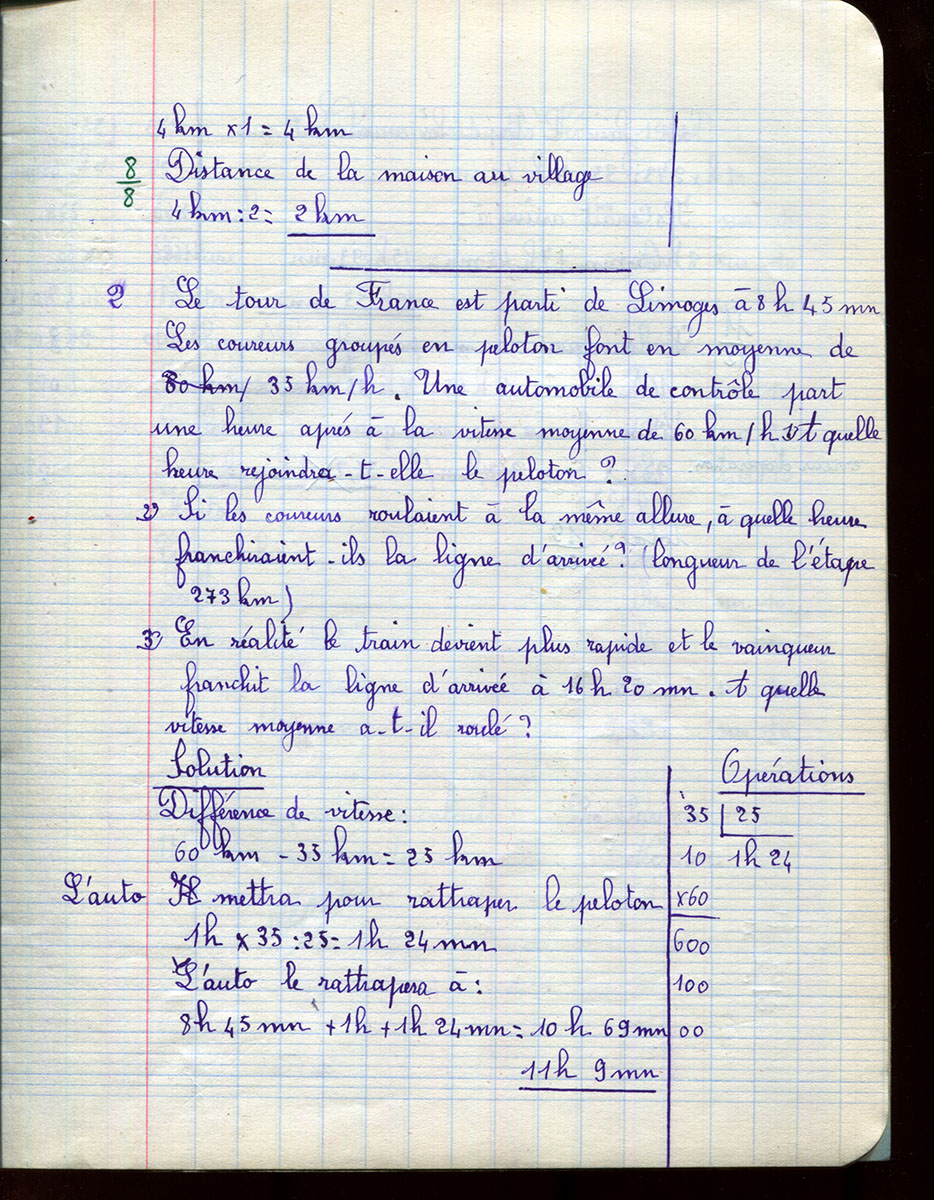 4 km x1 = 4 km
8/8 Distance de la maison au village
4 km : 2 = 2 km
2 Le tour de France est parti de Limoges à 8 h 45 mn
Les coureurs groupés en peloton font en moyenne de
80 km/ 35 km/h. Une automobile de contrôle part
une heure aprés à la vitesse moyenne de 60 km/h A quelle
heure rejoindra-t-elle le peloton ?
2) Si les coureurs roulaient à la même allure, à quelle heure
franchiraient-ils la ligne d'arrivée ? (longueur de l'étape
273 km)
3) En réalité le train devient plus rapide et le vainqueur
franchit la ligne d'arrivée à 16 h 20 mn. A quelle
vitesse moyenne a-t-il roulé ?
Solution
Différence de vitesse :
60 km - 35 km = 25 km
L'auto Il mettra pour rattraper le peloton
1h x 35 : 25 = 1h 24 mn
L'auto le rattrapera à :
8h 45 mn + 1h + 1h 24 mn = 10 h 69 mn
11h 9 mn
Opérations
35 | 25
10 1h 24
x60
600
100
00